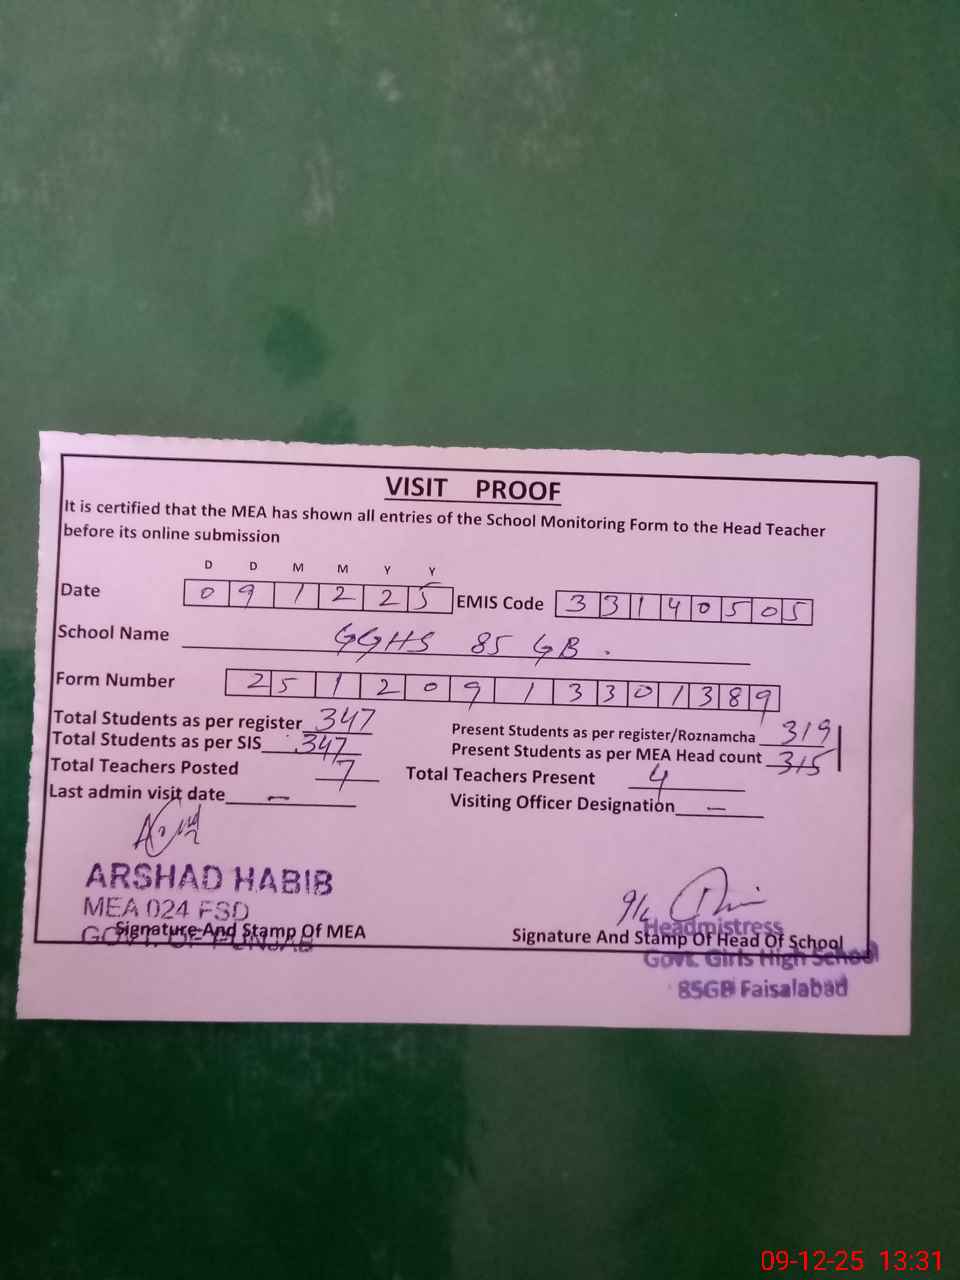 VISIT PROOF
It is certified that the MEA has shown all entries of the School Monitoring Form to the Head Teacher
before its online submission
D D M M Y Y
Date 0 9 1 2 2 5 EMIS Code 3 3 1 4 0 5 0 5
School Name GGHS 85 GB .
Form Number 2 5 1 2 0 9 1 3 3 0 1 3 8 9
Total Students as per register 347 Present Students as per register/Roznamcha 319
Total Students as per SIS 347 Present Students as per MEA Head count 315
Total Teachers Posted 7 Total Teachers Present 4
Last admin visit date — Visiting Officer Designation —
ARSHAD HABIB
MEA 024 FSD
GOVT. OF PUNJAB
Signature And Stamp Of MEA
Headmistress
Signature And Stamp Of Head Of School
Govt. Girls High School
85GB Faisalabad
09-12-25 13:31